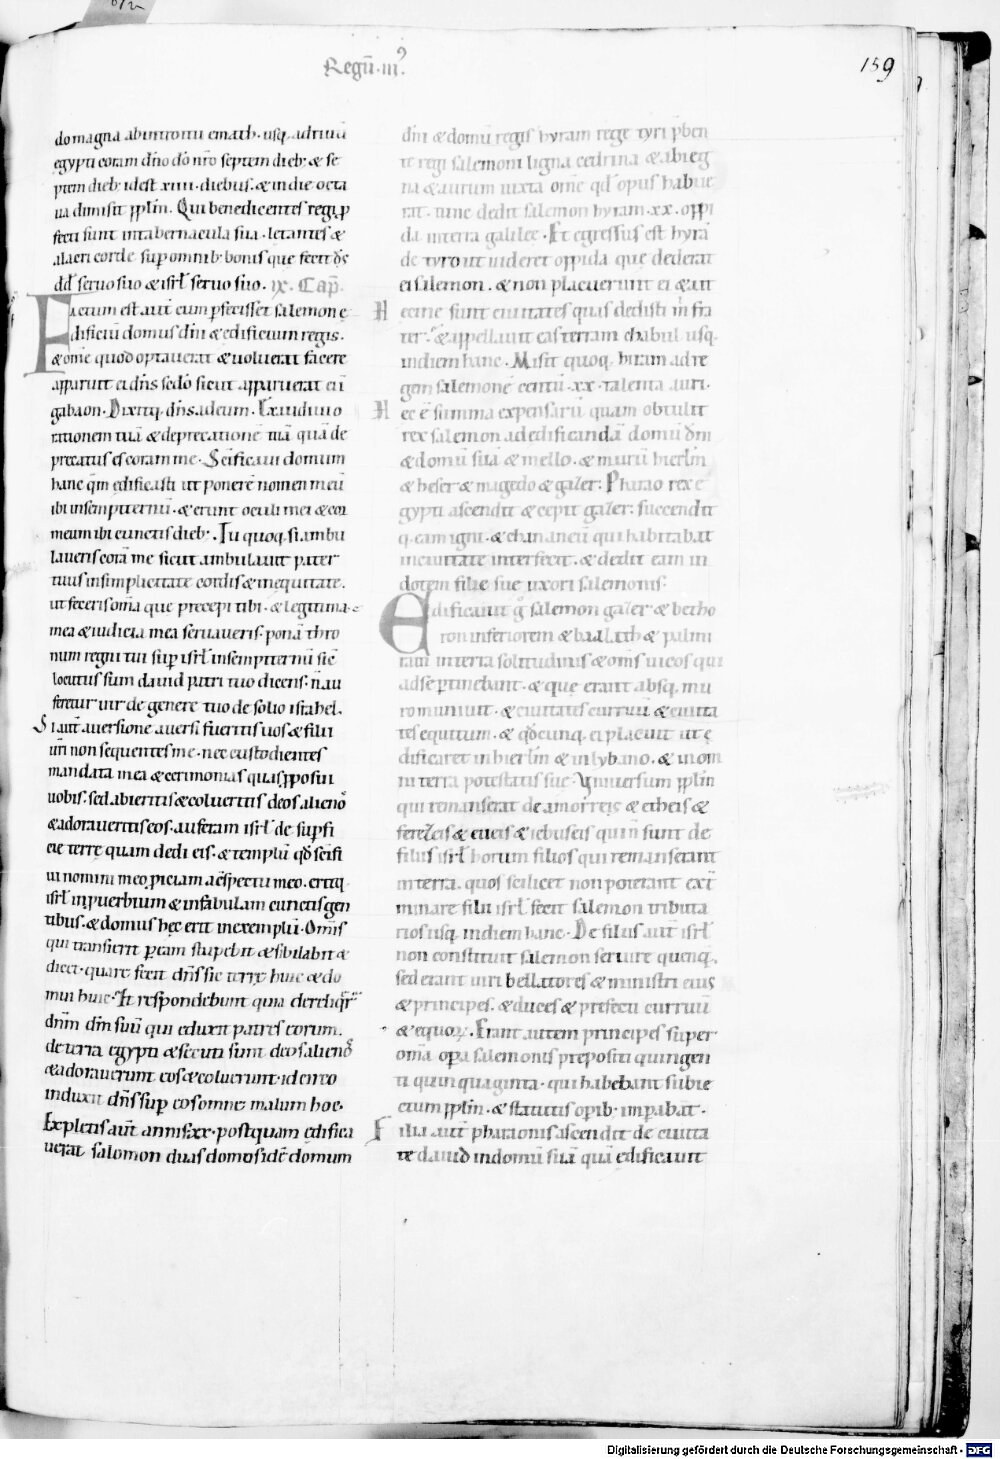 Regū · iii⁹
159
do magna ab introitu emath · usq; ad riuū
egypti coram dn̄o dō nr̄o septem dieb; & se
ptem dieb; id est xiiii · diebus · & in die octa
ua dimisit ppl̄m · Qui benedicentes regi p̄
fecti sunt in tabernacula sua · letantes &
alacri corde sup omnib; bonis que fecit dn̄s
dd̄ seruo suo & isrl̄ seruo suo · ix · Cap̄.
Factum est aut̄ cum ꝑfecisset salemon ę
dificiū domus dn̄i & edificium regis ·
& om̄e quod optauerat & uoluerat facere
apparuit ei dn̄s sedo sicut apparuerat ei ī
gabaon · Dixitq; dn̄s ad eum · Exaudiui o
rationem tuā & deprecationē tuā quā de
precatus es coram me · Scīficaui domum
hanc qm̄ edificasti ut ponerē nomen meū
ibi in sempiternū · & erunt oculi mei & cor
meum ibi cunctis dieb; · Tu quoq; si ambu
laueris corā me sicut ambulauit pater
tuus in simplicitate cordis & in equitate ·
ut feceris om̄a que precepi tibi · & legitima
mea & iudicia mea seruaueris · ponā thro
num regni tui sup isrl̄ in sempiternū sic̄
locutus sum dauid patri tuo dicens · n̄ au
feretur uir de genere tuo de solio israhel ·
Si aut̄ auersione auersi fueritis uos & filii
ur̄i non sequentes me · nec custodientes
mandata mea & cerimonias quas pposui
uobis · sed abieritis & colueritis deos alienos
& adoraueritis eos · auferam isrl̄ de supfi
cie terrę quam dedi eis · & templū qd̄ scīfi
ui nomini meo piciam a c̄spectu meo · eritq;
isrl̄ in puerbium & in fabulam cunctis gen
tibus · & domus hęc erit in exemplū · Om̄is
qui transierit p eam stupebit & sibilabit &
dicet · quare fecit dn̄s sic terrę huic & do
mui huic · Et respondebunt quia dereliqr̄
dn̄m dm̄ suū qui eduxit patres eorum ·
de terra egypti & secuti sunt deos alienos
& adorauerunt eos & coluerunt · idcirco
induxit dn̄s sup eos omne malum hoc ·
Expletis aut̄ annis xx · postquam edifica
uerat salomon duas domos id ē domum
dn̄i & domū regis hyram rege tyri p̄ben
te regi salemoni ligna cedrina & abieg
na & aurum iuxta om̄e qd̄ opus habue
rat · tunc dedit salemon hyram · xx · oppi
da in terra galilee · Et egressus est hyrā
de tyro ut uideret oppida que dederat
ei salemon · & non placuerunt ei & ait
Hecine sunt ciuitates quas dedisti m̄ fra
ter · & appellauit eas terram chabul usq;
in diem hanc · Misit quoq; hiram ad re
gem salemonē centū · xx · talenta auri ·
Hec ē summa expensarū quam obtulit
rex salemon ad edificandā domū dn̄i
& domū suā & mello · & murū hierl̄m
& heser & magedo & gazer · Pharao rex e
gypti ascendit & cepit gazer · succendit
q; eam igni · & chananeū qui habitabat
in ciuitate interfecit · & dedit eam in
dotem filię suę uxori salemonis ·
Edificauit g̊ salemon gazer & betho
ron inferiorem & baalath & palmi
ram in terra solitudinis & om̄s uicos qui
ad se ptinebant · & que erant absq; mu
ro muniuit · & ciuitates curruū & ciuita
tes equitum · & qd̄cunq; ei placuit ut ę
dificaret in hierl̄m & in lybano · & in om̄
ni terra potestatis sue · Vniuersum ppl̄m
qui remanserat de amorreis & etheis &
ferezeis & eueis & iebuseis qui n̄ sunt de
filiis isrl̄ horum filios qui remanserant
in terra · quos scilicet non poterant ext̄
minare filii isrl̄ fecit salemon tributa
rios usq; in diem hanc · De filiis aut̄ isrl̄
non constituit salemon seruire quenq;
sed erant uiri bellatores & ministri eius
& principes · & duces & prefecti curruū
& equoꝝ · Erant autem principes super
om̄a opa salemonis prepositi quingen
ti quinquaginta · qui habebant subie
ctum ppl̄m · & statutis opib; impabāt ·
Filia aut̄ pharaonis ascendit de ciuita
te dauid in domū suā quā edificauit
Digitalisierung gefördert durch die Deutsche Forschungsgemeinschaft - DFG